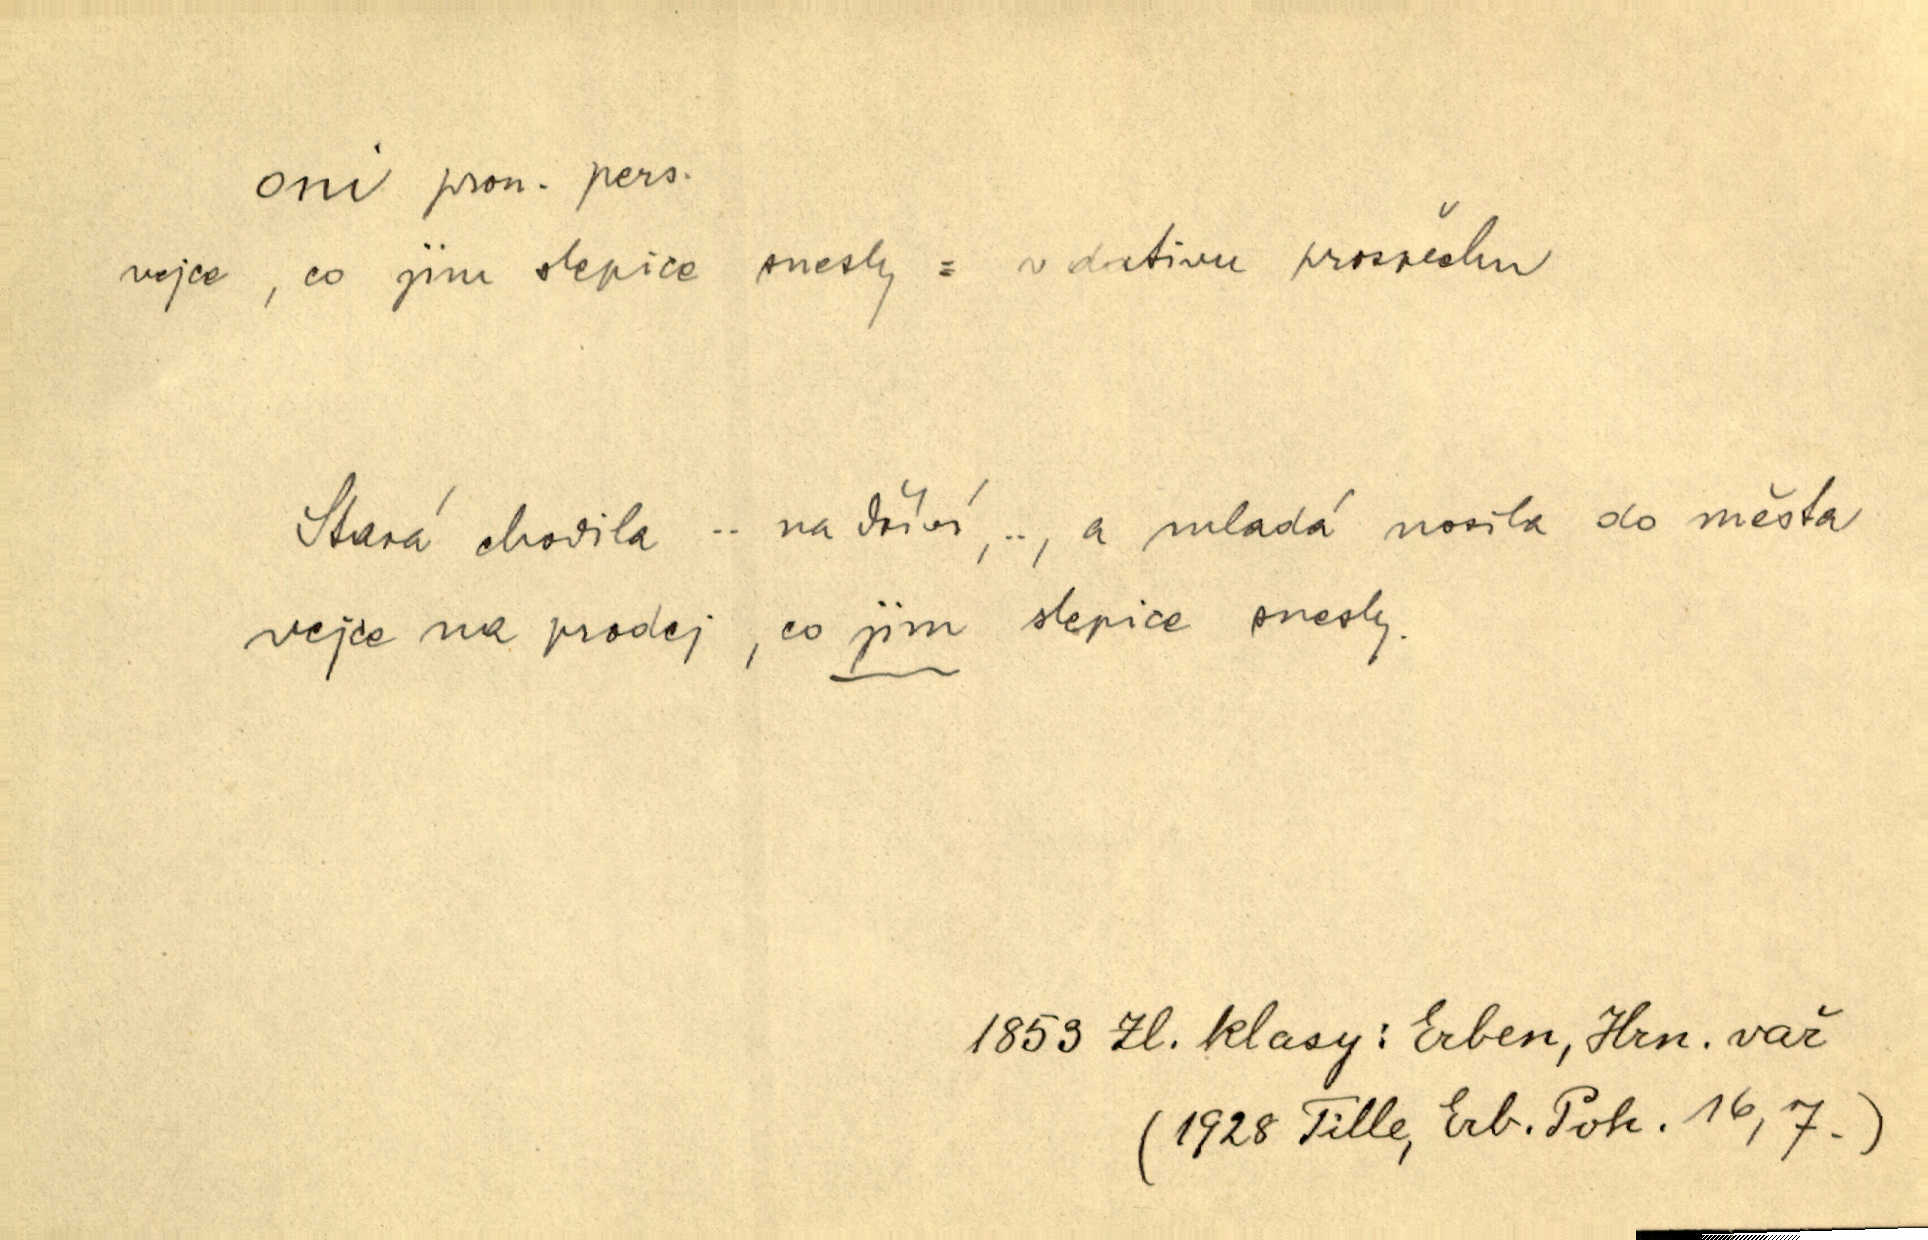 oni pron. pers.
vejce, co jim slepice snesly = v dativu prospěchu
Stará chodila .. na dříví, .., a mladá nosila do města
vejce na prodej, co jim slepice snesly.
1853 Zl. klasy: Erben, Hrn. vař
(1928 Tille, Erb. Poh. 16, 7.)